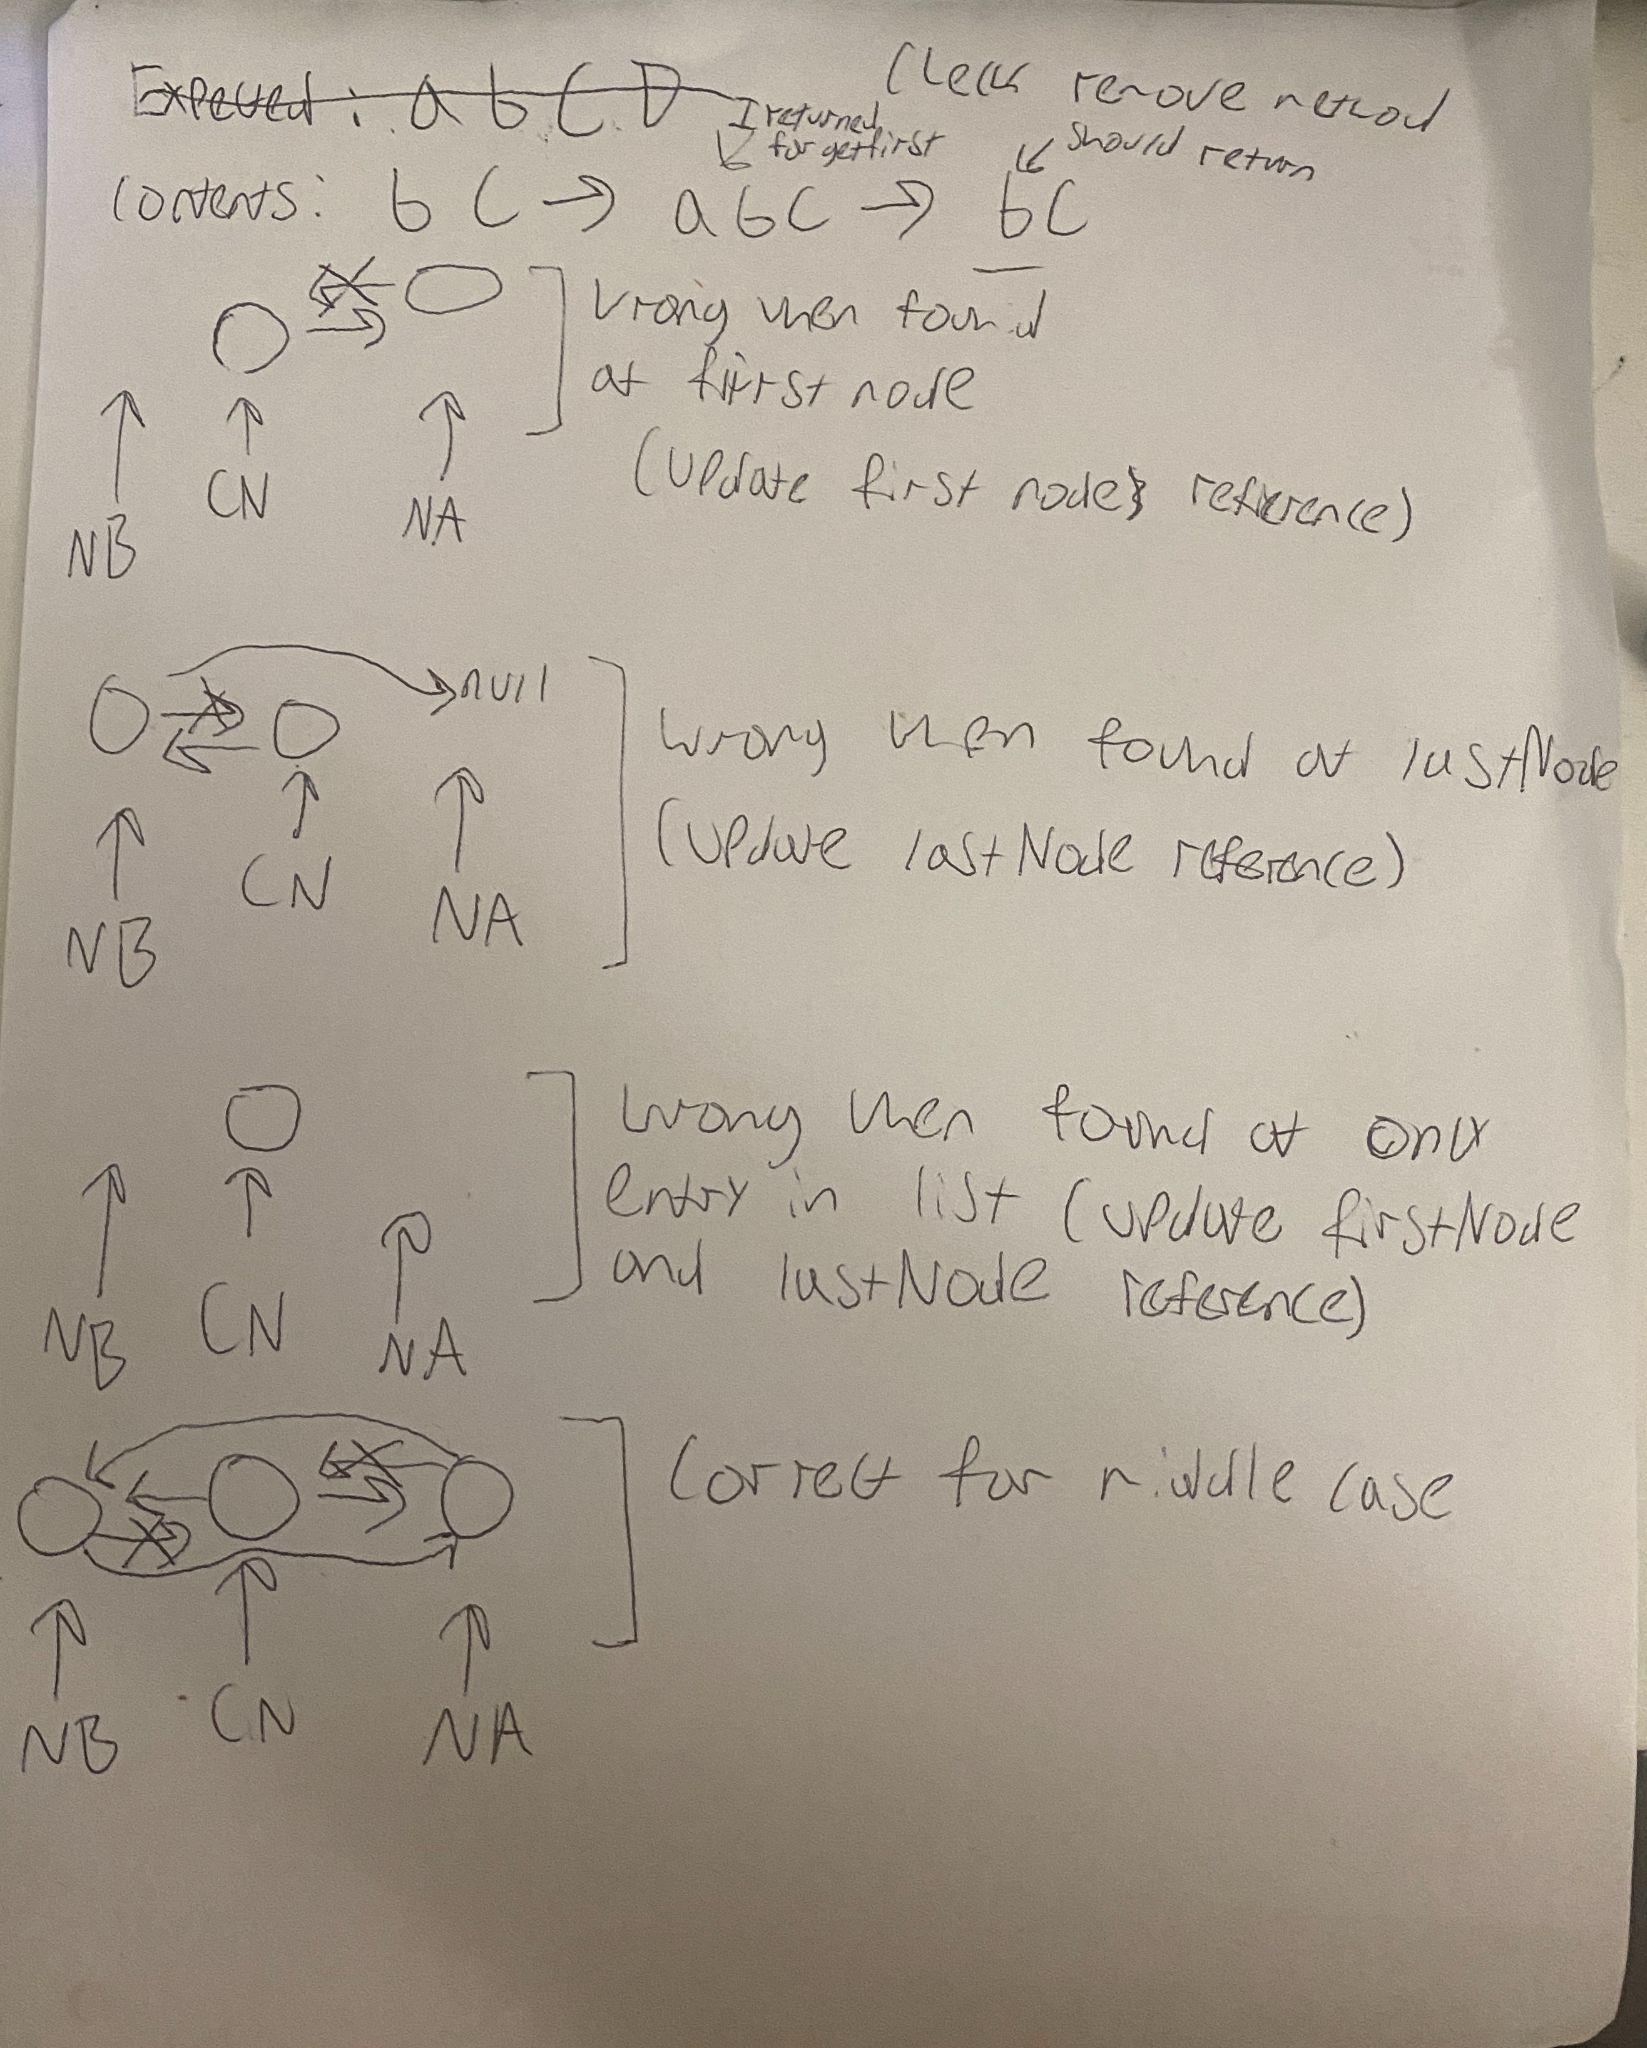 Expected: a b C D
Check remove method
I returned
for getfirst
should return
Contents: b C → a b C → b C
Wrong when found
at first node
(Update first node's reference)
NB CN NA
null
Wrong when found at lastNode
(Update lastNode reference)
NB CN NA
Wrong when found at only
entry in list (update firstNode
and lastNode reference)
NB CN NA
Correct for middle case
NB CN NA